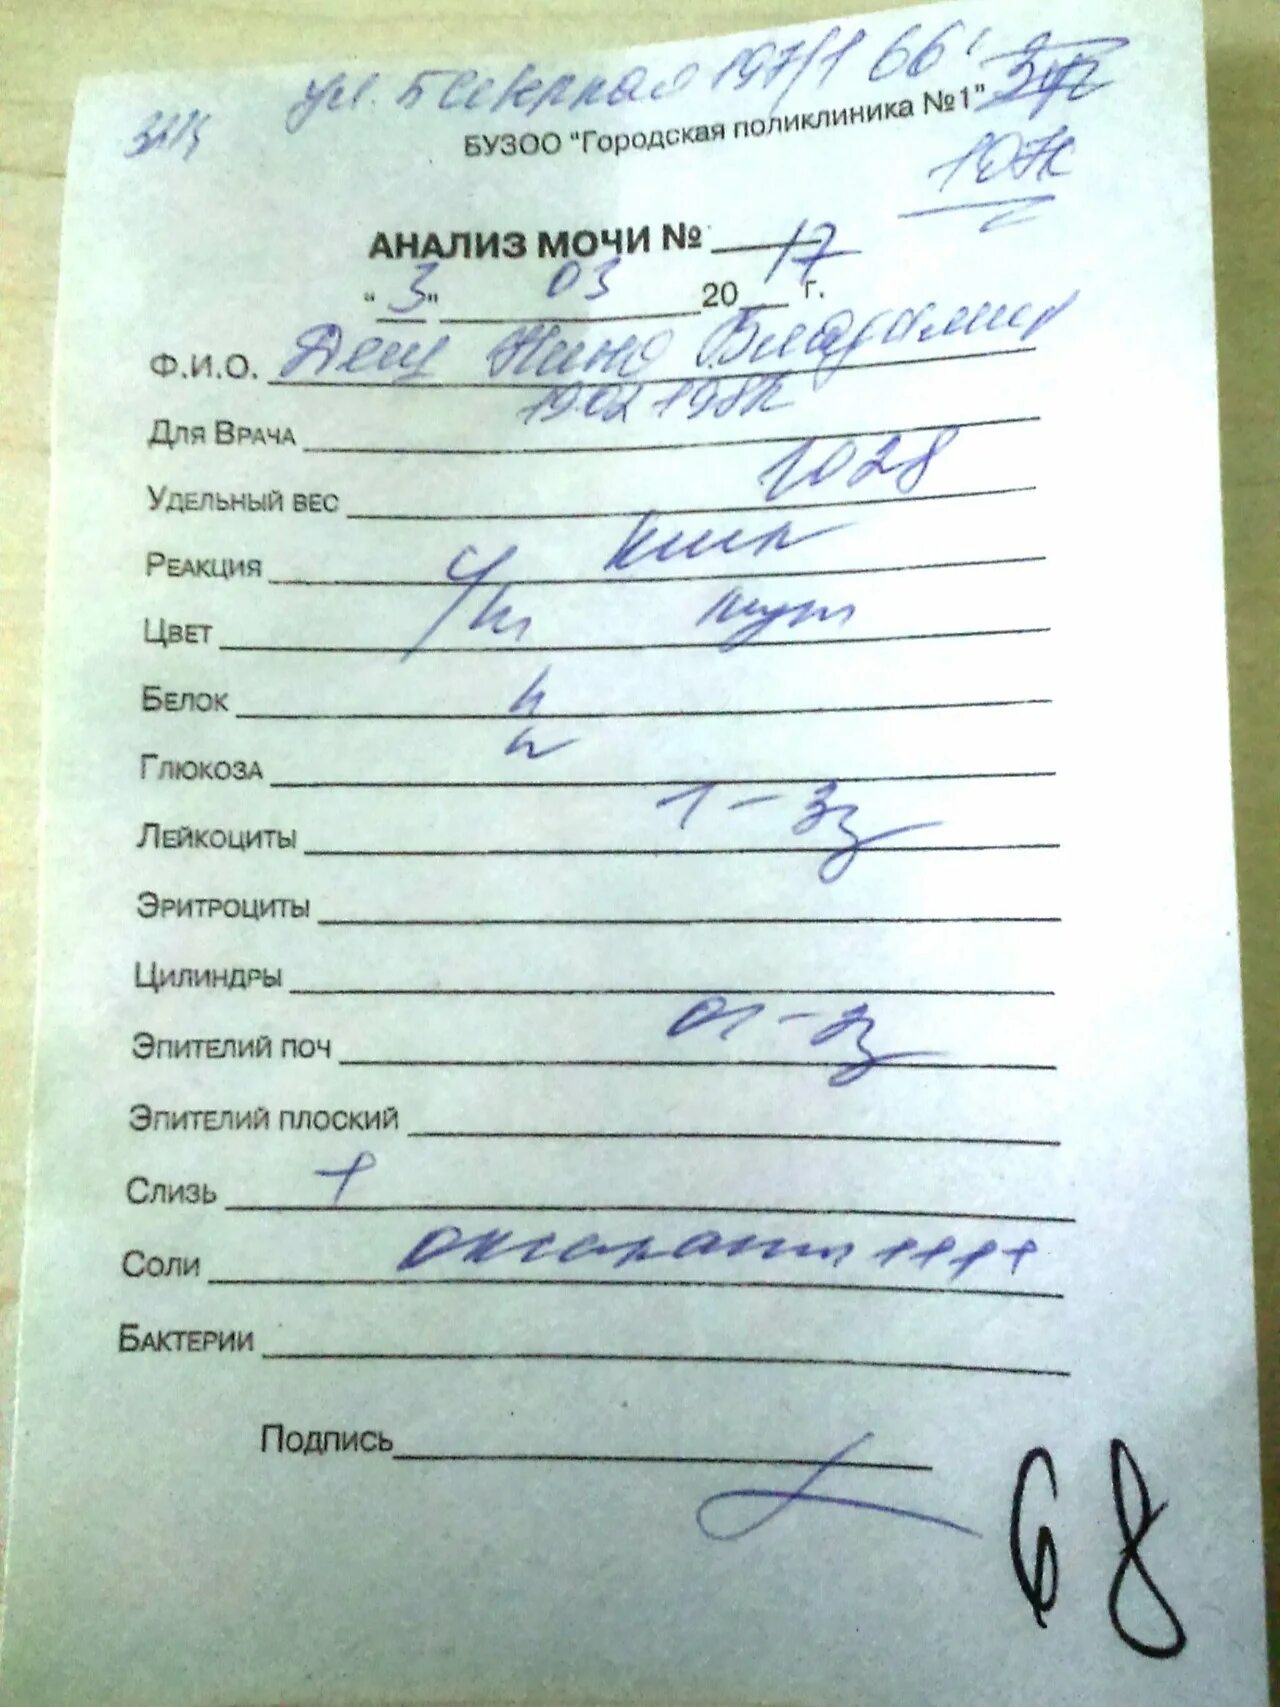 ул. 197/1 66
БУЗОО "Городская поликлиника №1"
107к
АНАЛИЗ МОЧИ №
"3" 03 2017 г.
Ф.И.О. Нина Владимир
Для Врача
Удельный вес 1028
Реакция кисл
Цвет с/ж мут
Белок н
Глюкоза н
Лейкоциты 1-3
Эритроциты
Цилиндры
Эпителий поч
Эпителий плоский
Слизь +
Соли оксалаты ++++
Бактерии
Подпись
68